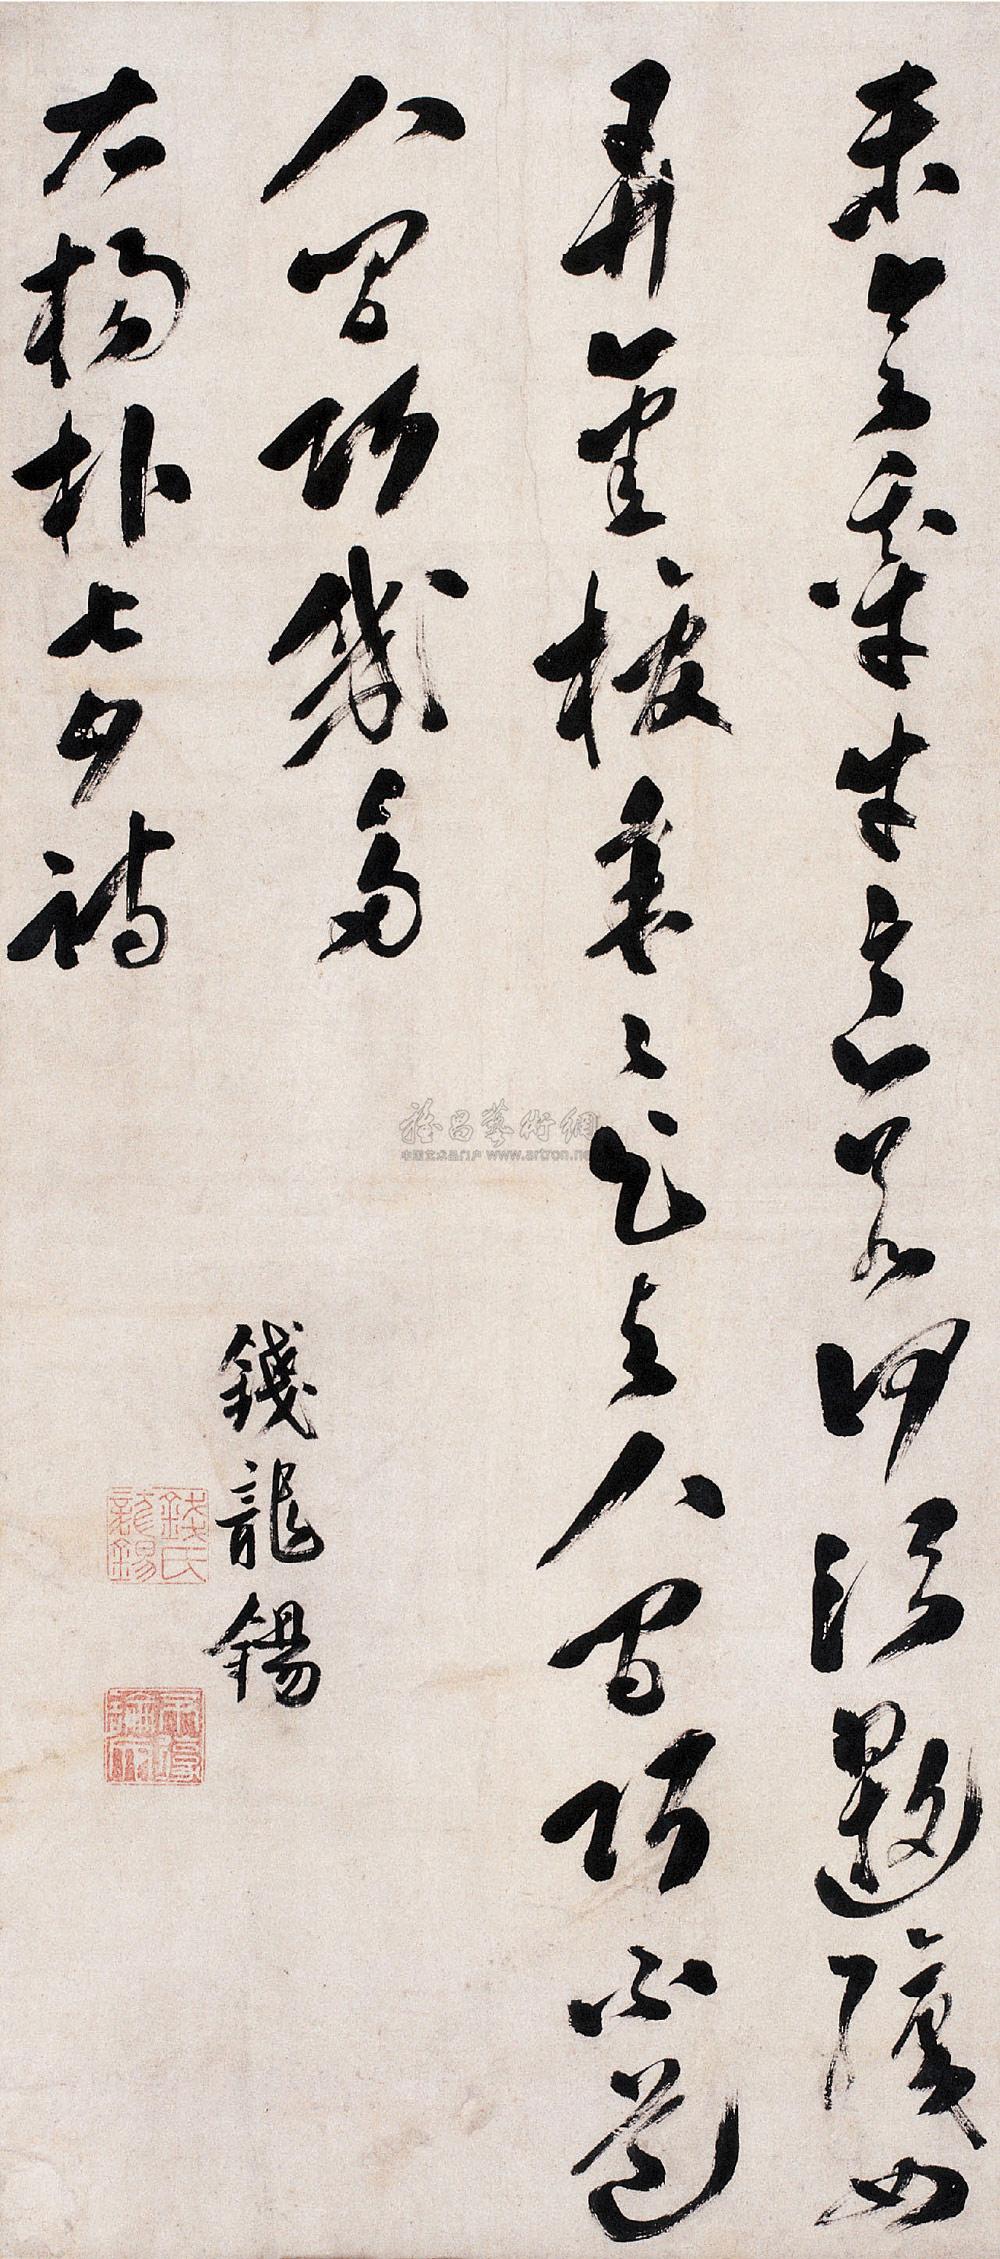 未會牽牛意若何須邀織女
弄金梭年〻乞与人間巧不道
人間巧幾多
右楊朴七夕詩
錢龍錫
錢氏龍錫
雅昌藝術網
中国艺术品门户 www.artron.net